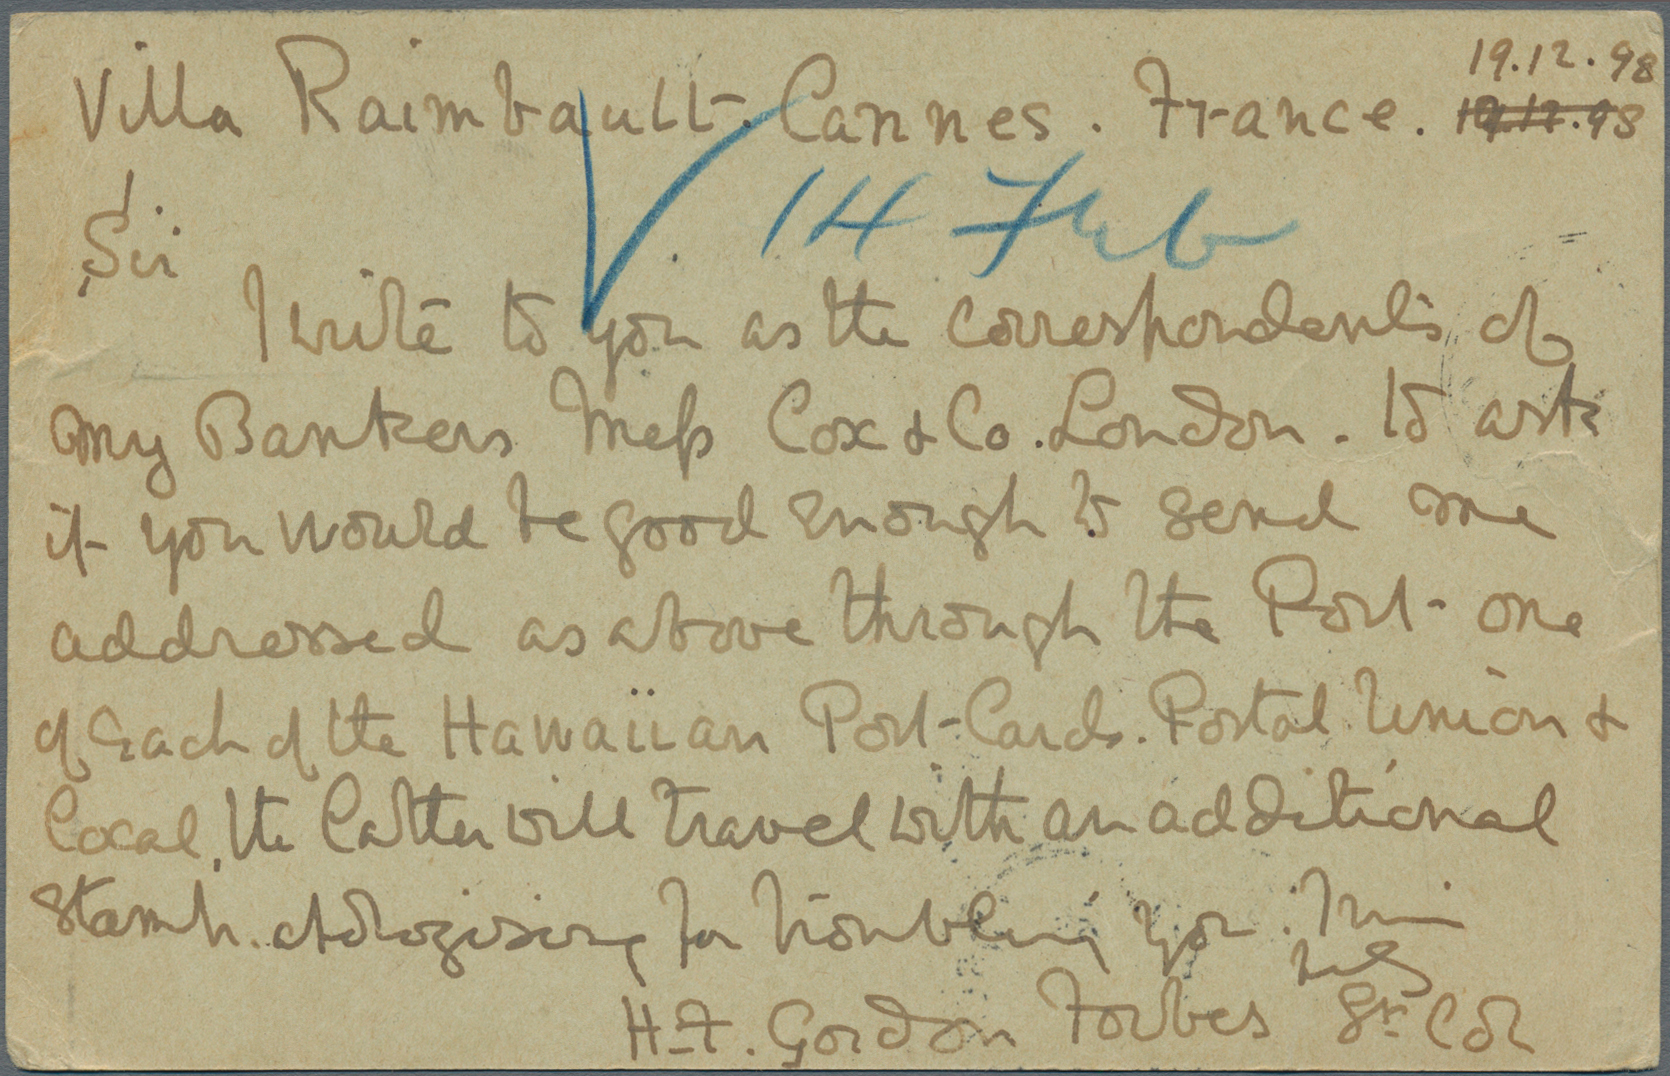 19.12.98
Villa Raimbault. Cannes. France. 19.12.98
14 Feb
Sir
I write to you as the correspondents of
my Bankers Mess Cox & Co. London. to ask
if you would be good enough to send me
addressed as above through the Post - one
of each of the Hawaiian Post-Cards. Postal Union &
Local, the latter will travel with an additional
stamp. Apologising for troubling you.
H.F. Gordon Forbes Lt Col